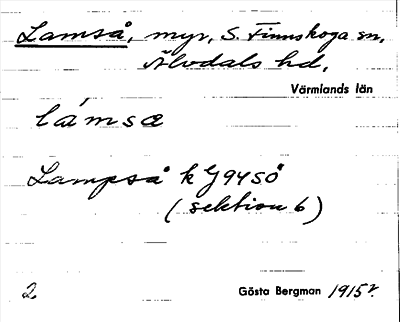 Lamså, myr, S. Finnskoga sn,
Älvdals hd,
Värmlands län
lámsœ
Lampså k G94SÖ
(sektion 6)
2. Gösta Bergman 1915 r.